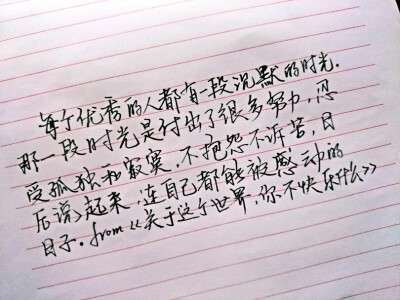 每个优秀的人都有一段沉默的时光.
那一段时光是付出了很多努力,忍
受孤独和寂寞,不抱怨不诉苦,日
后说起来,连自己都能被感动的
日子. from《关于这个世界,你不快乐什么》